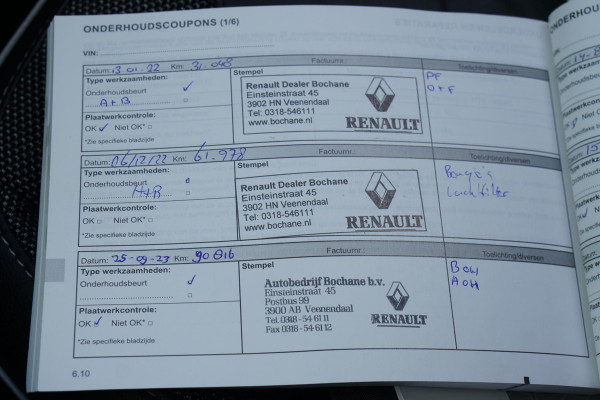 ONDERHOUDSCOUPONS (1/6)
VIN:
Datum: 13-01-22 Km: 31.048 Factuurnr.: Toelichting/diversen
Type werkzaamheden: Stempel
Onderhoudsbeurt ✓
A+B
Plaatwerkcontrole:
OK ✓ Niet OK* □
*Zie specifieke bladzijde
Renault Dealer Bochane
Einsteinstraat 45
3902 HN Veenendaal
Tel: 0318-546111
www.bochane.nl
RENAULT
PF
O+F
Datum: 06/12/22 Km: 61.978 Factuurnr.: Toelichting/diversen
Type werkzaamheden: Stempel
Onderhoudsbeurt
A+B
Plaatwerkcontrole:
OK □ Niet OK* □
*Zie specifieke bladzijde
Renault Dealer Bochane
Einsteinstraat 45
3902 HN Veenendaal
Tel: 0318-546111
www.bochane.nl
RENAULT
Bougie's
Luchtfilter
Datum: 25-09-23 Km: 90016 Factuurnr.: Toelichting/diversen
Type werkzaamheden: Stempel
Onderhoudsbeurt ✓
Plaatwerkcontrole:
OK ✓ Niet OK* □
*Zie specifieke bladzijde
Autobedrijf Bochane b.v.
Einsteinstraat 45
Postbus 99
3900 AB Veenendaal
Tel. 0318 - 54 61 11
Fax 0318 - 54 61 12
RENAULT
BOW
AOH
6.10
ONDERHOU